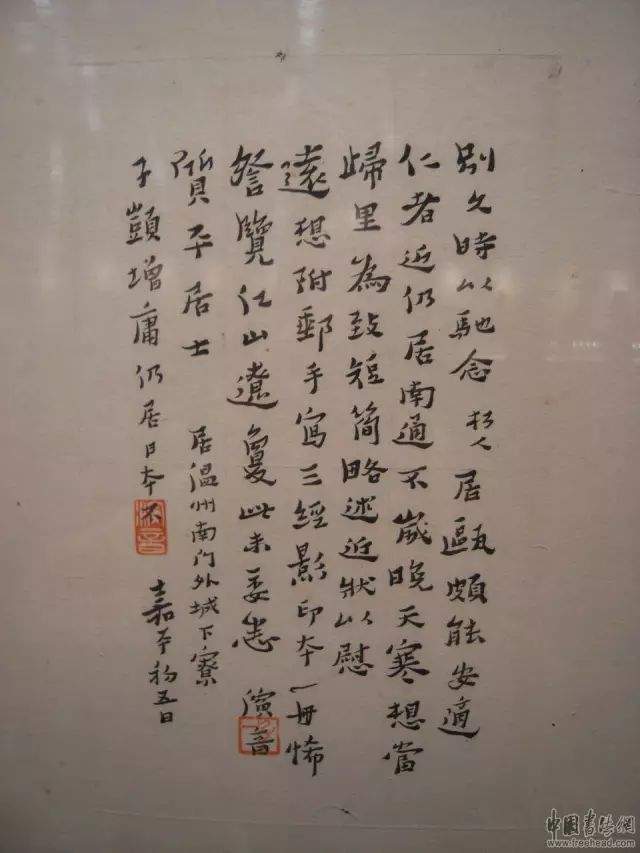 別久時以馳念朽人居甌頗能安適
仁者近仍居南通不歲晚天寒想當
歸里為致短簡略述近狀以慰
遠想附郵手寫三經影印本一冊悕
詧覽江山遼夐此未委悉 演音
質平居士 居溫州南門外城下寮
子顗增庸仍居日本不 嘉平初五日
演音
中国書法網
www.freehead.com